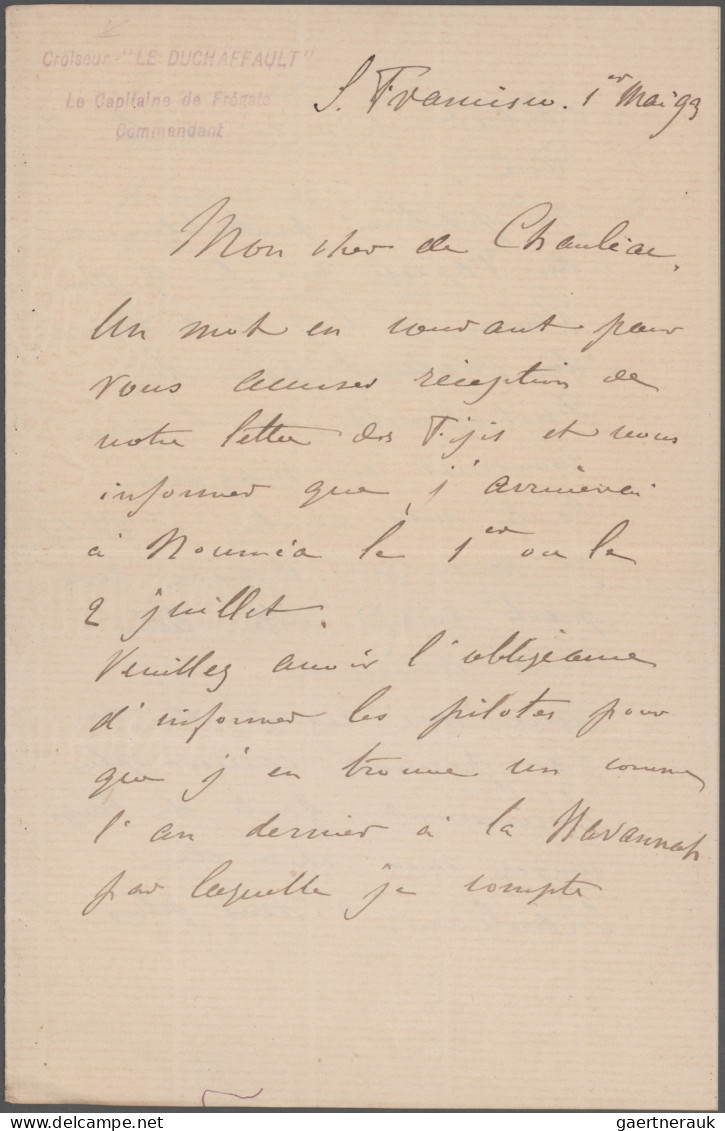 Croiseur "LE DUCHAFFAULT"
Le Capitaine de Frégate
Commandant
S. Francisco. 1er Mai 93
Mon cher de Chauliac,
Un mot en courant pour
vous accuser réception de
votre lettre des Fijis et vous
informer que j'arriverai
à Nouméa le 1er ou le
2 juillet.
Veuillez avoir l'obligeance
d'informer les pilotes pour
que j'en trouve un comme
l'an dernier à la Havannah
par laquelle je compte
gaertnerauk